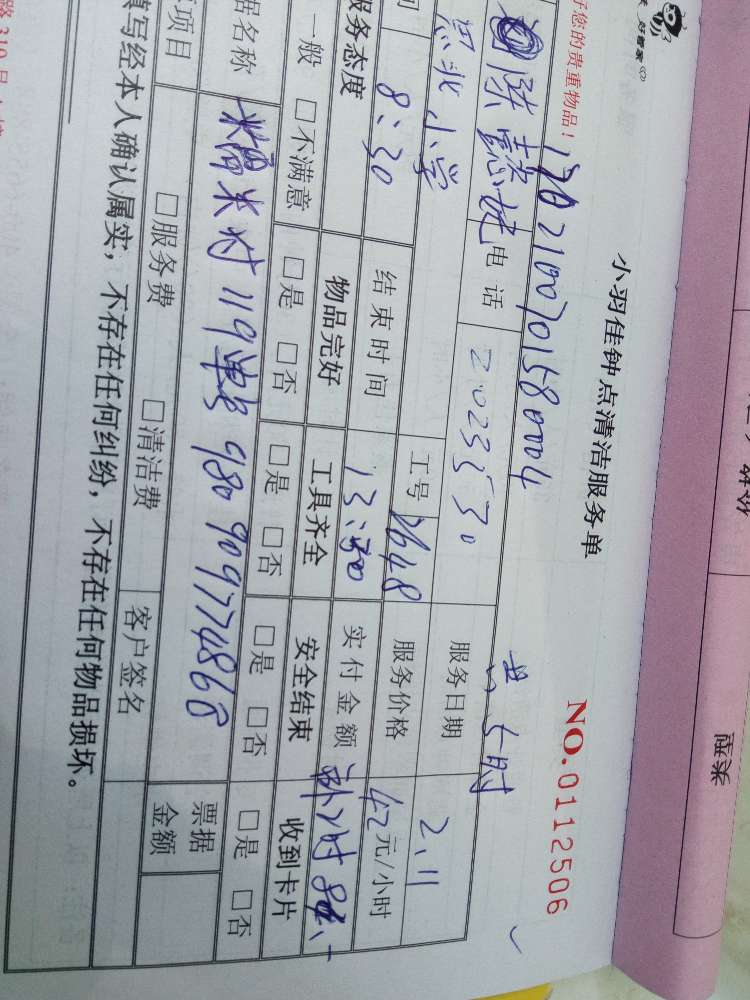 小羽佳钟点清洁服务单
NO.0112506
好您的贵重物品！
共5时
电话
2023530
服务日期
2.11
思北小学
工号
2648
服务价格
42元/小时
8:30
结束时间
实付金额
服务态度
物品完好
工具齐全
安全结束
收到卡片
一般 □不满意
□是 □否
□是 □否
□是 □否
□是 □否
据名称
糯米村119单号980909774868
票据金额
项目
□服务费
□清洁费
客户签名
填写经本人确认属实，不存在任何纠纷，不存在任何物品损坏。